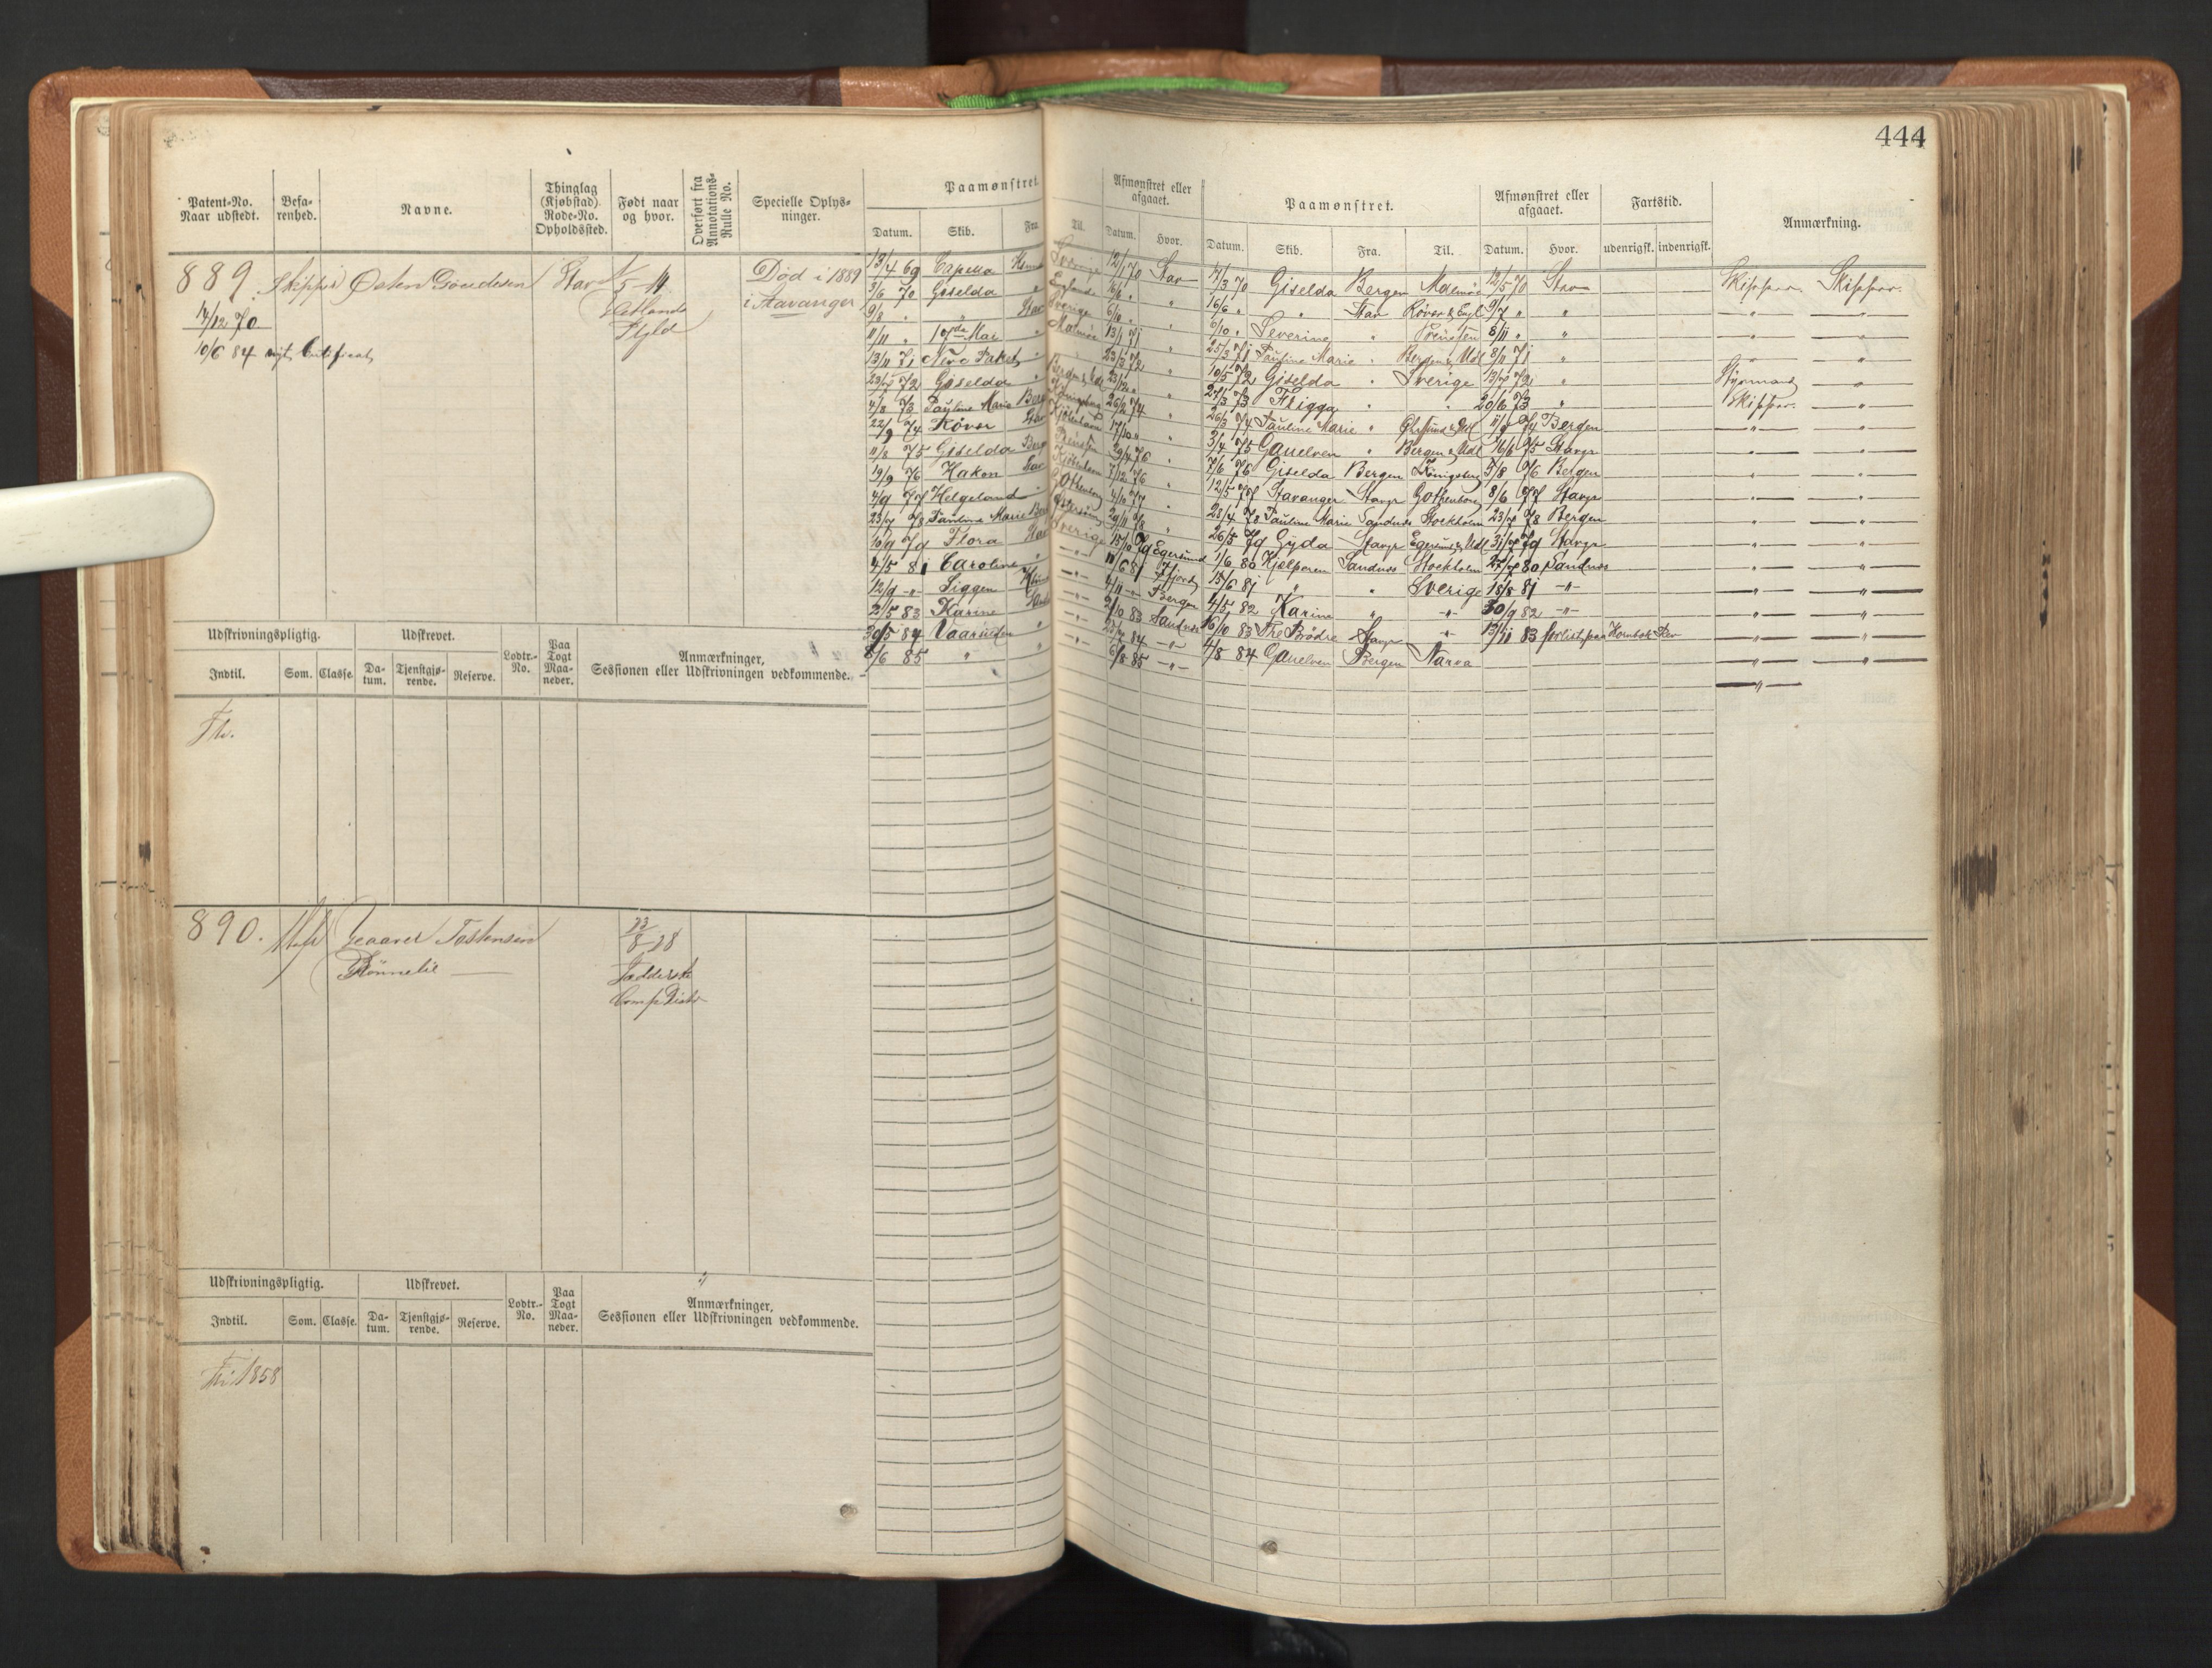 444
Patent-No. Naar udstedt.
Befa-renhed.
Navne.
Thinglag (Kjøbstad) Rode-No. Opholdssted.
Født naar og hvor.
Overført fra Annotations-Rulle No.
Specielle Oplys-ninger.
Paamønstret.
Afmønstret eller afgaaet.
Paamønstret.
Afmønstret eller afgaaet.
Fartstid.
Anmærkning.
Datum. Skib. Fra. Til. Datum. Hvor. Datum. Skib. Fra. Til. Datum. Hvor. udenrigsk. indenrigsk.
889. Skipper Østen Stav
14/12 70
10/6 84 nyt Certificat
Død i 1889
i Stavanger
13/4 69 Capella Sverige 12/1 70 Stav 17/3 70 Giselda Bergen Malmöe 12/5 70 Stav Skipper. Skipper.
3/6 70 Giselda " England 16/6 " " 16/6 " " Stav 9/7 " "
9/8 " " Stav Sverige 6/10 " " 6/10 " Severine " 8/11 " "
11/11 " 17de Mai " Malmöe 13/1 71 " 25/3 71 Pauline Marie " Bergen & Udl 8/11 71 "
13/11 71 " 23/3 72 " 10/5 72 Giselda " Sverige 13/7 72 " Styrmand
23/7 72 Giselda " Bergen & Udl 23/12 " " 27/3 73 Frigga " " 20/6 73 " Skipper.
4/8 73 Pauline Marie Berg 26/2 74 " 26/3 74 Pauline Marie " 11/9 74 Bergen
22/9 74 Røver Stav Kjøbenhavn 17/10 " " 3/4 75 Gauelven " Bergen & Udl 16/6 75 Stavgr
11/8 75 Giselda Berg 29/4 76 " 7/6 76 Giselda Bergen Königsberg 5/8 76 Bergen
19/9 76 Hakon Stav Kjøbenhavn 7/12 76 " 12/5 77 Stavanger Stavgr Gothenborg 8/6 77 Stavgr
4/9 77 Helgeland " Gothenborg 4/10 77 " 28/4 78 Pauline Marie Sandnes Stockholm 23/7 78 Bergen
23/7 78 Pauline Marie Berg 29/11 78 " 26/5 79 Gyda Stavgr Egersund & Udl 31/7 79 Stavgr
10/9 79 Flora Stav Sverige 15/10 79 Egersund 1/6 80 Hjelperen Sandnes Stockholm 27/7 80 Sandnes
4/5 81 Caroline " 11/6 81 15/6 81 " " Sverige 18/8 81 -"-
12/9 -"- Siggen 4/11 -"- Bergen 4/5 82 Karine " -"- 30/9 82 -"-
2/5 83 Karine 2/10 83 Sandnes 16/10 83 Tre Brødre Stavgr -"- 13/11 83 forlist paa
30/5 84 Vaarin " 84 -"- 4/8 84 Gauelven Bergen Narva
8/6 85 " " 6/8 85 -"-
Udskrivningspligtig. Udskrevet. Lodtr.-No. Paa Togt Maa-neder. Anmærkninger, Sessionen eller Udskrivningen vedkommende.
Indtil. Som. Classe. Da-tum. Tjenstgjø-rende. Reserve.
890. Tostensen
23/8 28
Udskrivningspligtig. Udskrevet. Lodtr.-No. Paa Togt Maa-neder. Anmærkninger, Sessionen eller Udskrivningen vedkommende.
Indtil. Som. Classe. Da-tum. Tjenstgjø-rende. Reserve.
1858